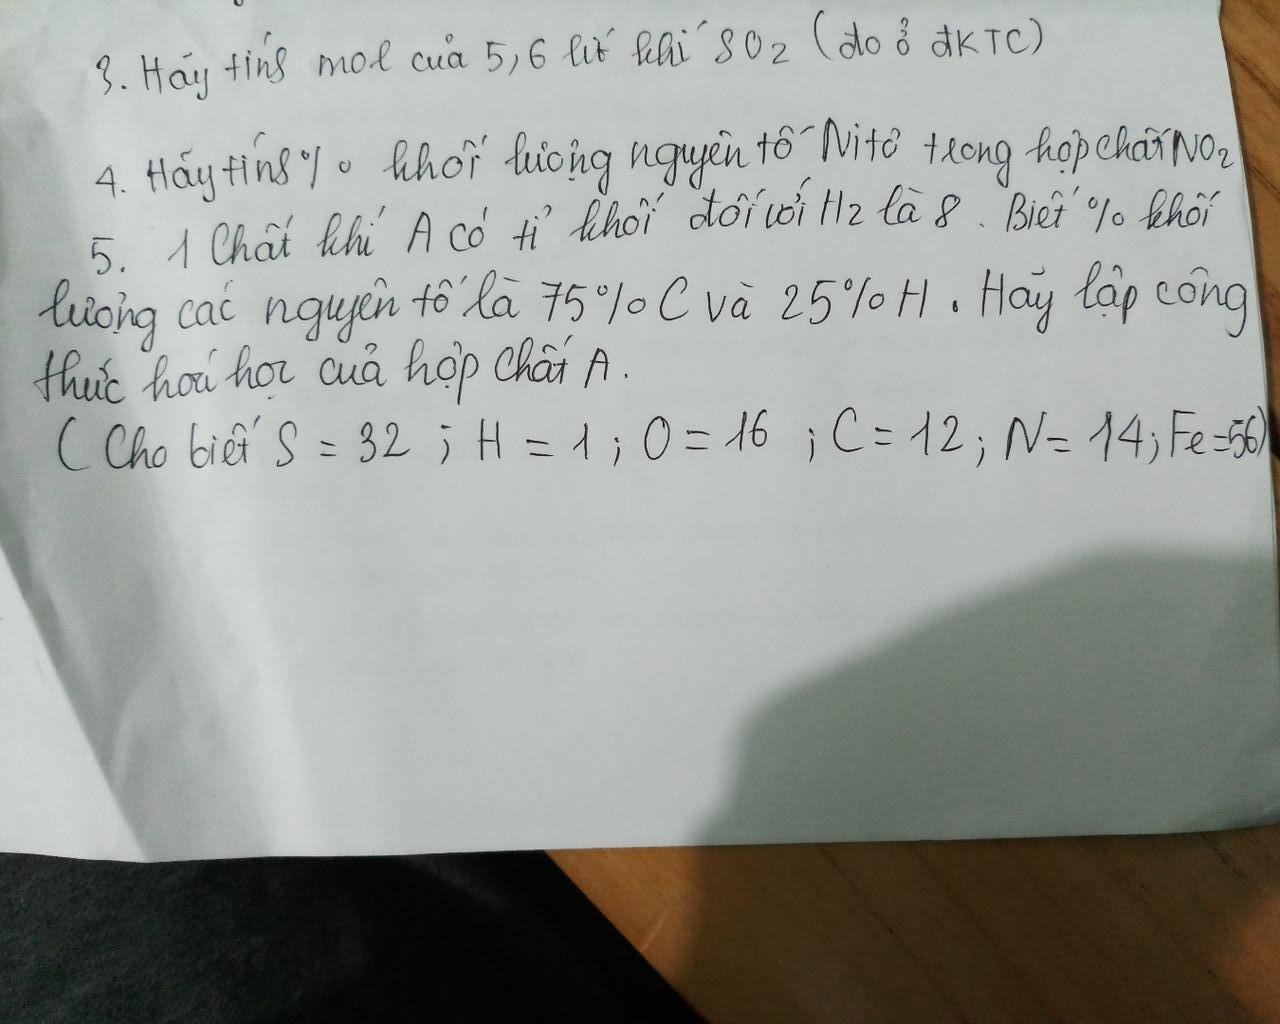 3. Hãy tính mol của 5,6 lít khí SO2 (đo ở đKTC)
4. Hãy tính % khối lượng nguyên tố Nitơ trong hợp chất NO2
5. 1 Chất khí A có tỉ khối đối với H2 là 8. Biết % khối
lượng các nguyên tố là 75% C và 25% H. Hãy lập công
thức hoá học của hợp chất A.
(Cho biết S = 32; H = 1; O = 16; C = 12; N = 14; Fe = 56)